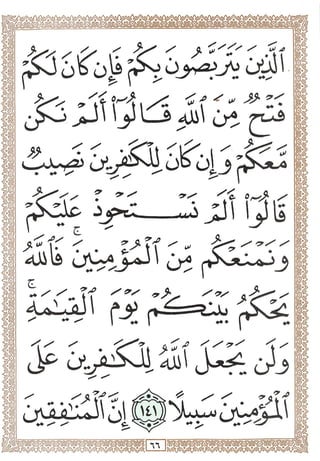 ٱلَّذِينَ يَتَرَبَّصُونَ بِكُمْ فَإِن كَانَ لَكُمْ
فَتْحٌ مِّنَ ٱللَّهِ قَالُوٓا۟ أَلَمْ نَكُن
مَّعَكُمْ وَإِن كَانَ لِلْكَٰفِرِينَ نَصِيبٌ
قَالُوٓا۟ أَلَمْ نَسْتَحْوِذْ عَلَيْكُمْ
وَنَمْنَعْكُم مِّنَ ٱلْمُؤْمِنِينَ ۚ فَٱللَّهُ
يَحْكُمُ بَيْنَكُمْ يَوْمَ ٱلْقِيَٰمَةِ ۚ
وَلَن يَجْعَلَ ٱللَّهُ لِلْكَٰفِرِينَ عَلَى
ٱلْمُؤْمِنِينَ سَبِيلًا ١٤١ إِنَّ ٱلْمُنَٰفِقِينَ
٦٦